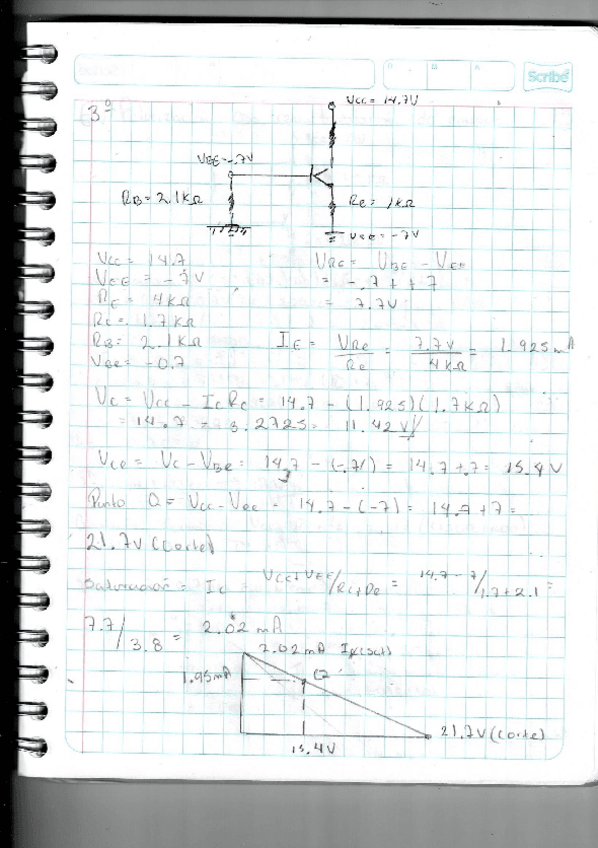 D M A
Scribe
3º
VCC = 14.7V
VBE = -.7V
RB = 2.1KΩ
RC = 1KΩ
VEE = -7V
VCC = 14.7
VEE = -7V
RE = 4KΩ
RC = 1.7KΩ
RB = 2.1KΩ
VBE = -0.7
VRE = VBE - VEE
= -.7 + +7
= 7.7V
IE = VRE / RE = 7.7V / 4KΩ = 1.925mA
VC = VCC - IC RC = 14.7 - (1.925)(1.7KΩ)
= 14.7 - 3.2725 = 11.42V
VCE = VC - VBE = 14.7 - (-.7) = 14.7 + .7 = 15.4V
Punto Q = VCC - VEE = 14.7 - (-7) = 14.7 + 7 =
21.7V (Corte)
Saturación = IC = VCC + VEE / RC + RE = 14.7 - 7 / 1.7 + 2.1 =
7.7 / 3.8 = 2.02 mA
2.02mA (sat)
1.95mA
Q
21.7V (Corte)
15.4V